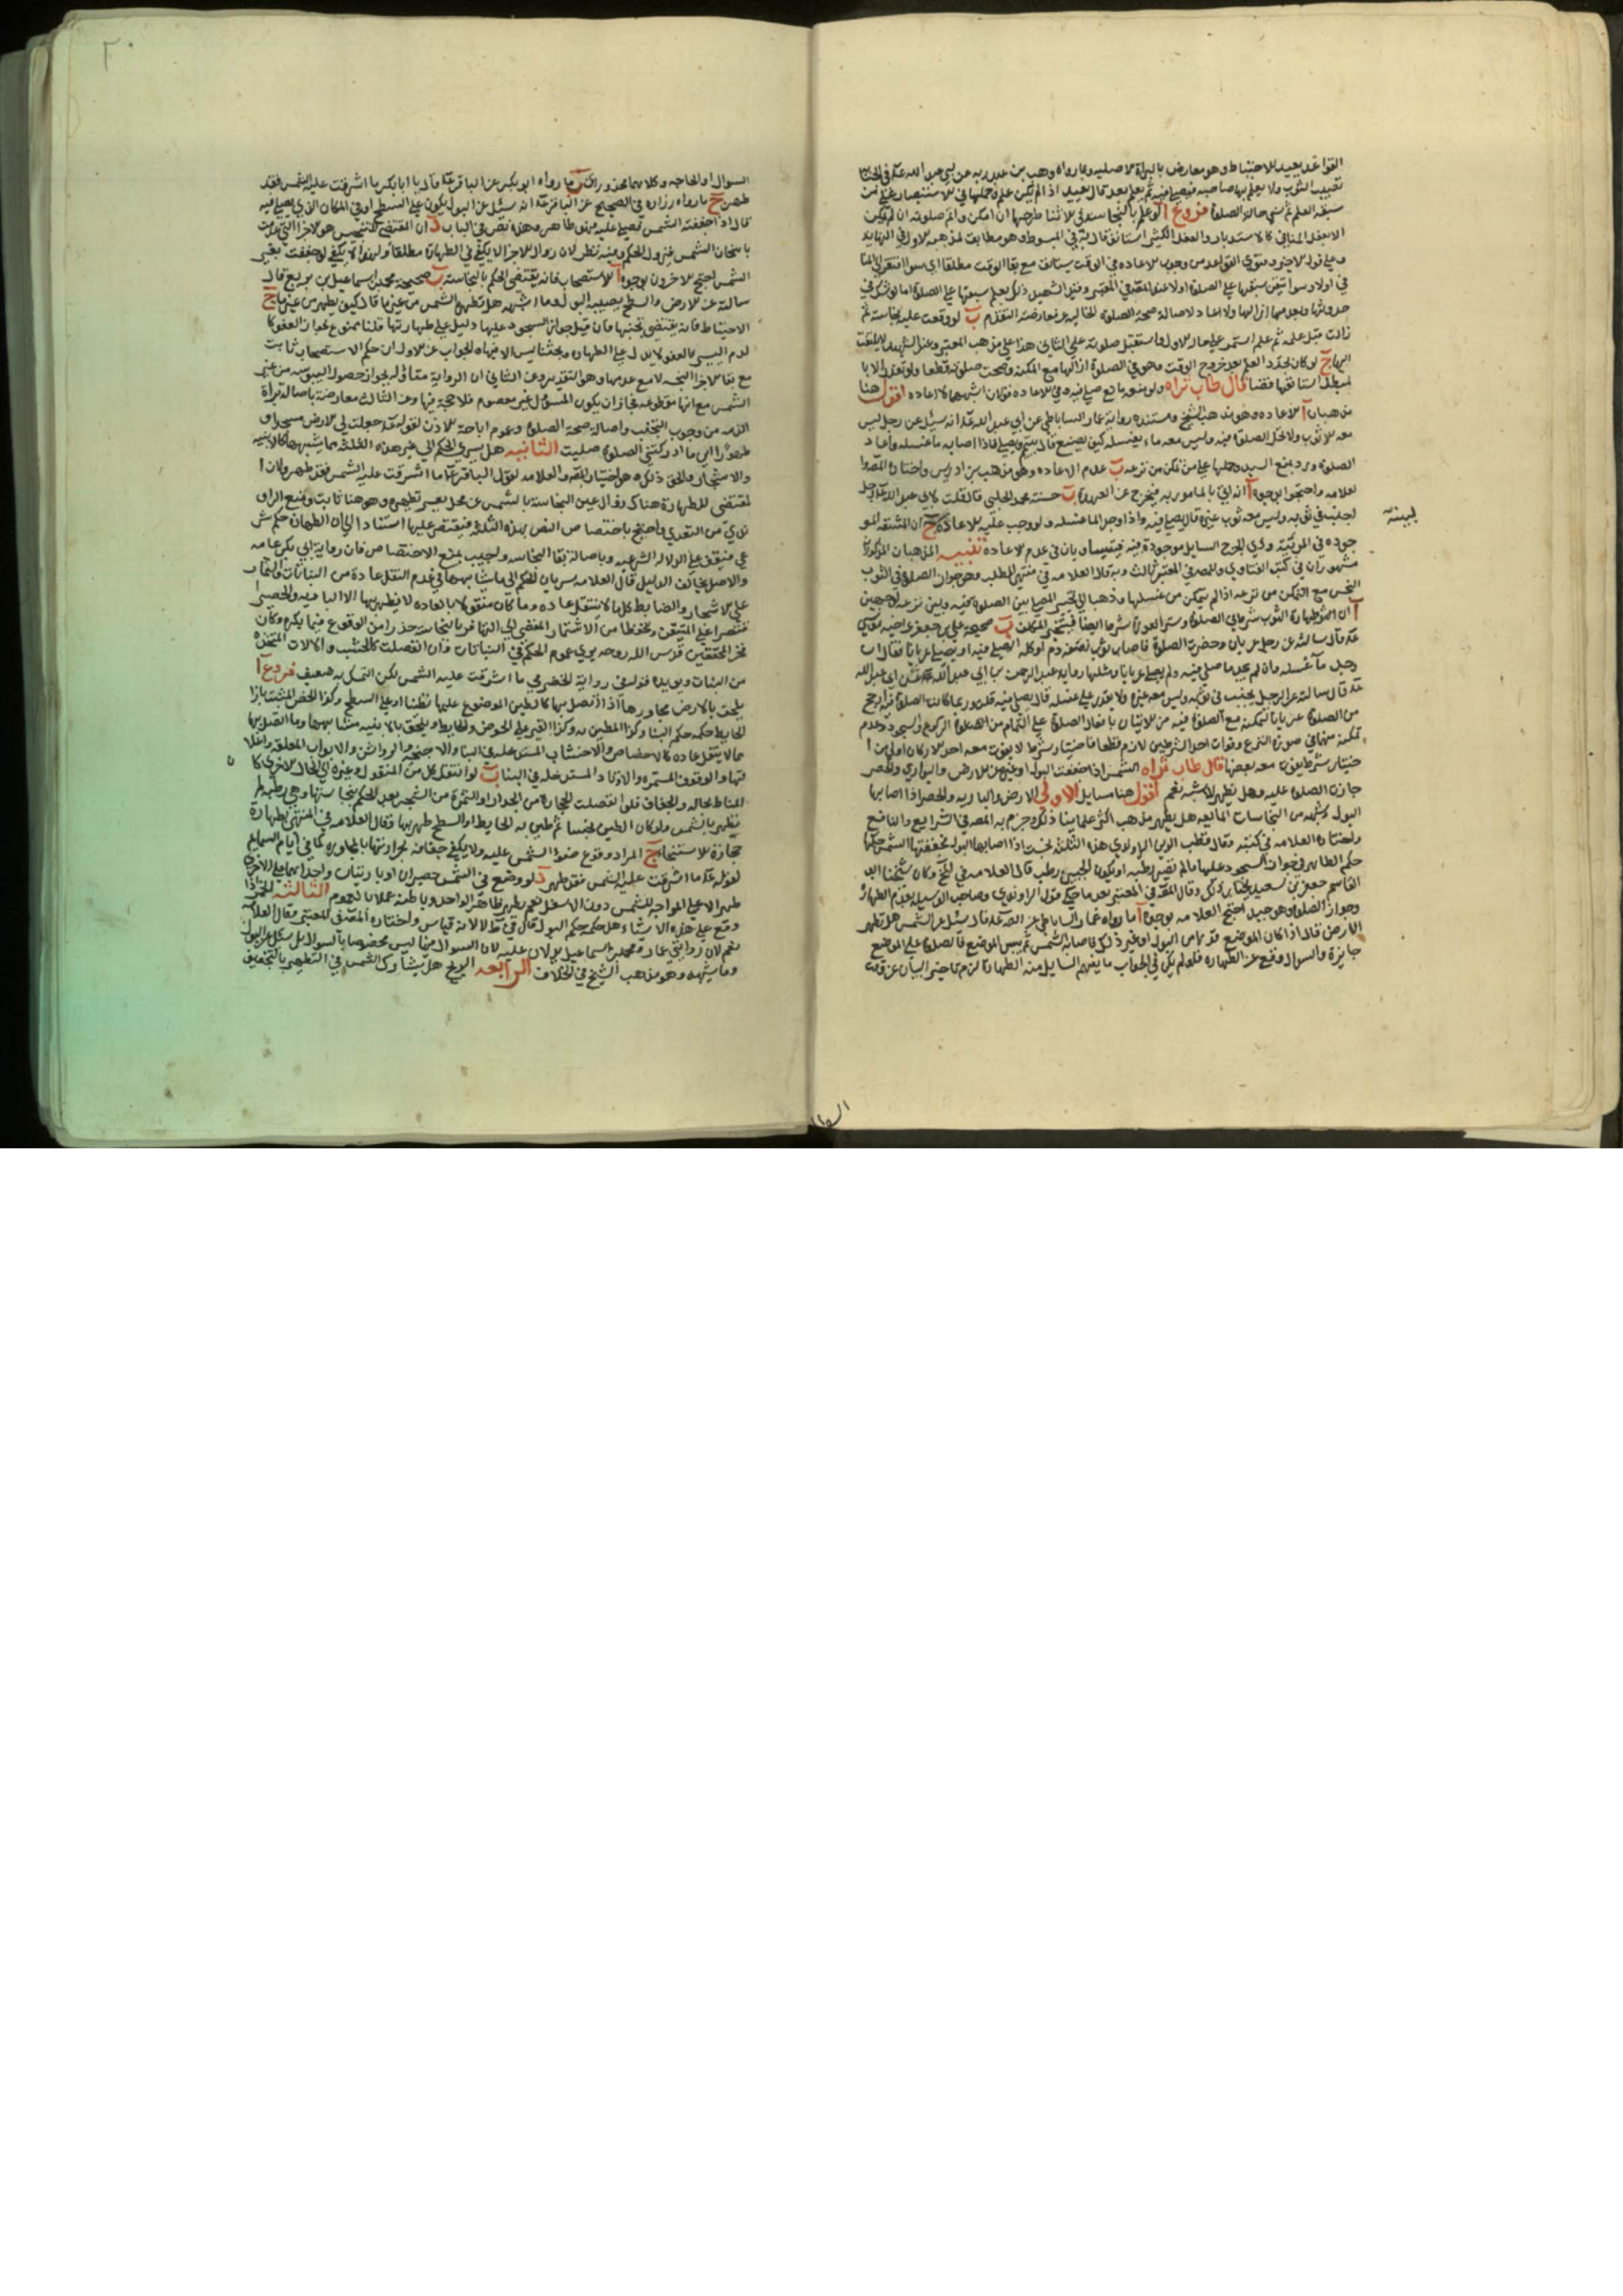 القواعد يعيد للاحتياط وهو معارض بالبراءة الاصليه وبما رواه وهب بن عبد ربه عن ابي عبد الله عه في الجنابة
تصيب الثوب ولا يعلم بها صاحبه فيصلي فيه ثم يعلم بعد قال يعيد اذا لم يكن علم وحملها في الاستبصار على من
سبقه العلم ثم نسي حالة الصلوة فروع آ لو علم بالنجاسة في الاثنا طرحها ان امكن واتم صلوته ان لم يمكن
الا بفعل المنافي كالاستدبار والفعل الكثير استانف قاله في المبسوط وهو مطابق لمذهبه الاول في النهايه
وعلى قوله الاخير وفتوى القواعد من وجوب الاعاده في الوقت يستانف مع بقا الوقت مطلقا اي سوا افتقر الى المنافي
او لا وسوا تيقن سبقها على الصلوة او لا
حدوثها وتقدمها ازالها ولا اعاد لاصالة صحة الصلوة الخاليه عن معارضة التقدم ب لو وقعت عليه نجاسة ثم
زالت قبل علمه ثم علم استمر على حاله الاول واستقبل صلوته على الثاني هذا على مذهب المعتبر
ج لو كان تجدد العلم بعد خروج الوقت وهو في الصلوة ازالها مع المكنة وصحت صلوته قطعا ولو تعذر الا با
لمبطل استانفها قضا قال طاب ثراه ولو منعه مانع صلى فيه وفي الاعاده قولان اشبههما لا اعاده اقول هنا
مذهبان آ الاعاده وهو مذهب الشيخ ومستنده رواية عمار الساباطي عن ابي عبد الله عه انه سئل عن رجل ليس
معه الا ثوب ولا تحل الصلوة فيه وليس معه ماء يغسله كيف يصنع قال يتيمم ويصلي فاذا اصاب ماء غسله واعاد
الصلوة ورد بمنع السند وحملها على من تمكن من نزعه ب عدم الاعاده وهو مذهب بن ادريس واختاره المصنف وا
لعلامه واحتجوا بوجوه آ انه اتى بالمامور به فيخرج عن العهدة ب حسنة محمد الحلبي قال قلت لابي عبد الله عه رجل
اجنب في ثوبه وليس معه ثوب غيره قال يصلي فيه واذا وجد الماء غسله ولو وجب عليه الاعاده ج ان المشقه المو
جوده في المربية وذي الجرح السايل موجودة فيه فيتساويان في عدم الاعاده تنبيه المذهبان المذكوران
مشهوران في كتب الفتاوى وللمصنف في المعتبر ثالث وبه قال العلامه في منتهى المطلب وهو جواز الصلوة في الثوب
النجس مع التمكن من نزعه اذا لم يتمكن من غسلها وذهبا الى تخير المصلي بين الصلوة فيه وبين نزعه لوجهين
آ ان طهارة الثوب شرط في الصلوة وستر العورة شرط ايضا فيتخير المكلف ب صحيحة علي بن جعفر عن اخيه موسى
عه قال سالته عن رجل عريان وحضرت الصلوة فاصاب ثوبا نصفه دم او كله ايصلي فيه او يصلي عريانا فقال ان
وجد ماء غسله وان لم يجد ماء صلى فيه ولم يصل عريانا ومثلها رواية عبد الرحمن بن ابي عبد الله عن ابي عبد الله
عه قال سالته عن الرجل يجنب في ثوبه وليس معه غيره ولا يقدر على غسله قال يصلي فيه
من الصلوة عريانا لتمكنه مع الصلوة فيه من الاتيان بافعال الصلوة على التمام من الركوع والسجود وعدم
تمكنه منهما في صورة النزع وفوات احد الشرطين لازم قطعا فاختيار شرط لا يفوت معه احد الاركان اولى من ا
ختيار شرط يفوت معه بعضها قال طاب ثراه الشمس اذا جففت البول او غيره عن الارض والبواري والحصر
جازت الصلوة عليه وهل تطهر الاشبه نعم اقول هنا مسايل الاولى الارض والباريه والحصر اذا اصابها
البول وشبهه من النجاسات المائعه هل يطهر مذهب اكثر علماينا ذلك وجزم به المصنف في الشرايع والنافع
واختاره العلامه في كتبه وقال قطب الدين الراوندي هذه الثلثة نجست اذا اصابها البول فجففتها الشمس حكمها
حكم الطاهر في جواز السجود عليها ما لم تصر رطبه او يكون الجبين رطب قال العلامه في المخ وكان شيخنا ابو
القاسم جعفر بن سعيد يختار ذلك وقال المصنف في المعتبر بعد ما حكى قول الراوندي وصاحب الوسيله بعدم الطهارة
وجواز الصلوة وهو جيد احتج العلامه بوجوه آ ما رواه عمار الساباطي عن الصه عه قال سئل عن الشمس هل تطهر
الارض قال اذا كان الموضع قذرا من البول او غير ذلك فاصابته الشمس ثم يبس الموضع فالصلوة على الموضع
جايزة والسوال وقع عن الطهاره فلو لم يكن في الجواب ما يفهم السايل منه الطهارة لزم تاخير البيان عن وقت
لبينه
السوال او الحاجه وكلاهما محذوران ب ما رواه ابو بكر عن الباقر عه قال يا ابا بكر ما اشرقت عليه الشمس فقد
طهر ج ما رواه زراره في الصحيح عن الباقر عه انه سئل عن البول يكون على السطح او في المكان الذي يصلى فيه
قال اذا جففته الشمس فصل عليه فهو طاهر وهذه نص في الباب د ان المقتضي للتنجيس هو الاجزا التي عدمت
باسخان الشمس فيزول الحكم وفيه نظر لان زوال الاجزا لا يكفي في الطهارة مطلقا ولهذا لا يكفي لو جففت بغير
الشمس احتج الاخرون بوجوه آ الاستصحاب فانه يقتضي الحكم بالنجاسة ب صحيحة محمد بن اسماعيل بن بزيع قال
سالته عن الارض والسطح يصيبه البول وما اشبهه هل تطهره الشمس من غير ماء قال كيف يطهر من غير ماء ج
الاحتياط فانه يقتضي تجنبها فان قيل جواز السجود عليها دليل على طهارتها قلنا ممنوع لجواز العفو كا
لدم اليسير فالعفو لا يدل على الطهارة وبحثنا ليس الا فيها والجواب عن الاول ان حكم الاستصحاب ثابت
مع بقا الاجزا النجسه لا مع عدمها وهو التقدير وعن الثاني ان الرواية متاوله لجواز حصول اليبوسه من غير
الشمس مع انها مقطوعه فجاز ان يكون المسؤل غير معصوم فلا حجة فيها وعن الثالث معارضة باصالة براة
الذمه من وجوب التجنب واصالة صحة الصلوة وعموم اباحة الاذن لقوله عه جعلت لي الارض مسجدا و
طهورا اين ما ادركتني الصلوة صليت الثانيه هل يسري الحكم الى غير هذه الثلثة مما يشبهها كالابنيه
والاشجار والحق ذلك وهو اختيار المصنف والعلامه لقول الباقر عه ما اشرقت عليه الشمس فقد طهر ولان ا
لمقتضي للطهارة هناك زوال عين النجاسة بالشمس عن محل يعسر تطهيره وهو هنا ثابت ومنع الراو
ندي من التعدي واحتج باختصاص النص بهذه الثلثة فيقتصر عليها استنادا الى ان الطهارة حكم شر
عي فيقف على الدلاله الشرعيه وباصالة بقا النجاسه واجيب بمنع الاختصاص فان رواية ابي بكر عامه
والاصل يخالف للدليل قال العلامه سريان الحكم الى ما شابههما في عدم النقل عادة من النباتات
على الاشجار والضابط كلما لا ينتقل عاده وما كان منقولا بالعاده لا يطهر بها الا الباريه والحصير ا
قتصارا على المتيقن وتحفظا من الاشتهار المفضي الى التهاون بالنجاسة حذرا من الوقوع فيما يكره وكان
فخر المحققين قدس الله روحه يرى عموم الحكم في النباتات وان انفصلت كالخشب والالات المتخذه
من النبات ويؤيده قوله في رواية الحضرمي ما اشرقت عليه الشمس لكن التمسك به ضعيف فروع آ
يلحق بالارض مجاورها اذا اتصل بها كالطين الموضوع عليها تطينا او على السطح وكذا الجص المثبت بازا
الحايط حكمه حكم البنا وكذا المطين به وكذا القير على الحوض والحايط ويلحق بالابنيه مشابهها وما اتصل بها
مما لا ينقل عاده كالاخصاص والاخشاب المستدخله في البنا والاجنحه والرواشن والابواب المعلقه واغلا
قها والرفوف المستمره والاوتاد المستدخله في البنا ب لو انتقل كل من المنقول وغيره الى الحال الاخرى كا
لمناط بحاله والجفاف فلو انفصلت الحجارة من الجدران او الثمرة من الشجره بعد الحكم بنجاستها
تطهر بالشمس ولو كان الطين نجسا ثم طين به الحايط او السطح طهر بها وقال العلامه في المنتهى بطهارة
حجارة الاستنجا ج المراد وقوع ضوء الشمس عليه ولا يكفي جفافه لحرارتها بالمجاوره كما في ايام السمايم
لقوله عه ما اشرقت عليه الشمس فقد طهر د لو وضع في الشمس حصيران او باريتان واحداهما على الاخرى
طهر الاعلى المواجه للشمس دون الاسفل نعم يطهر ظاهر الواحد وباطنه عملا بالعموم الثالثه الخمر اذا
وقع على هذه الاشياء هل حكمه حكم البول قال في ط لا لانه قياس واختاره المصنف في المعتبر وقال العلامه
نعم لان روايتي عمار ومحمد بن اسماعيل يدلان عليه لان السوال فيها ليس مخصوصا بالسوال بل سئل عن البول
وما يشبهه وهو مذهب الشيخ في الخلاف الرابعه الريح هل يشارك الشمس في التطهير بالتجفيف